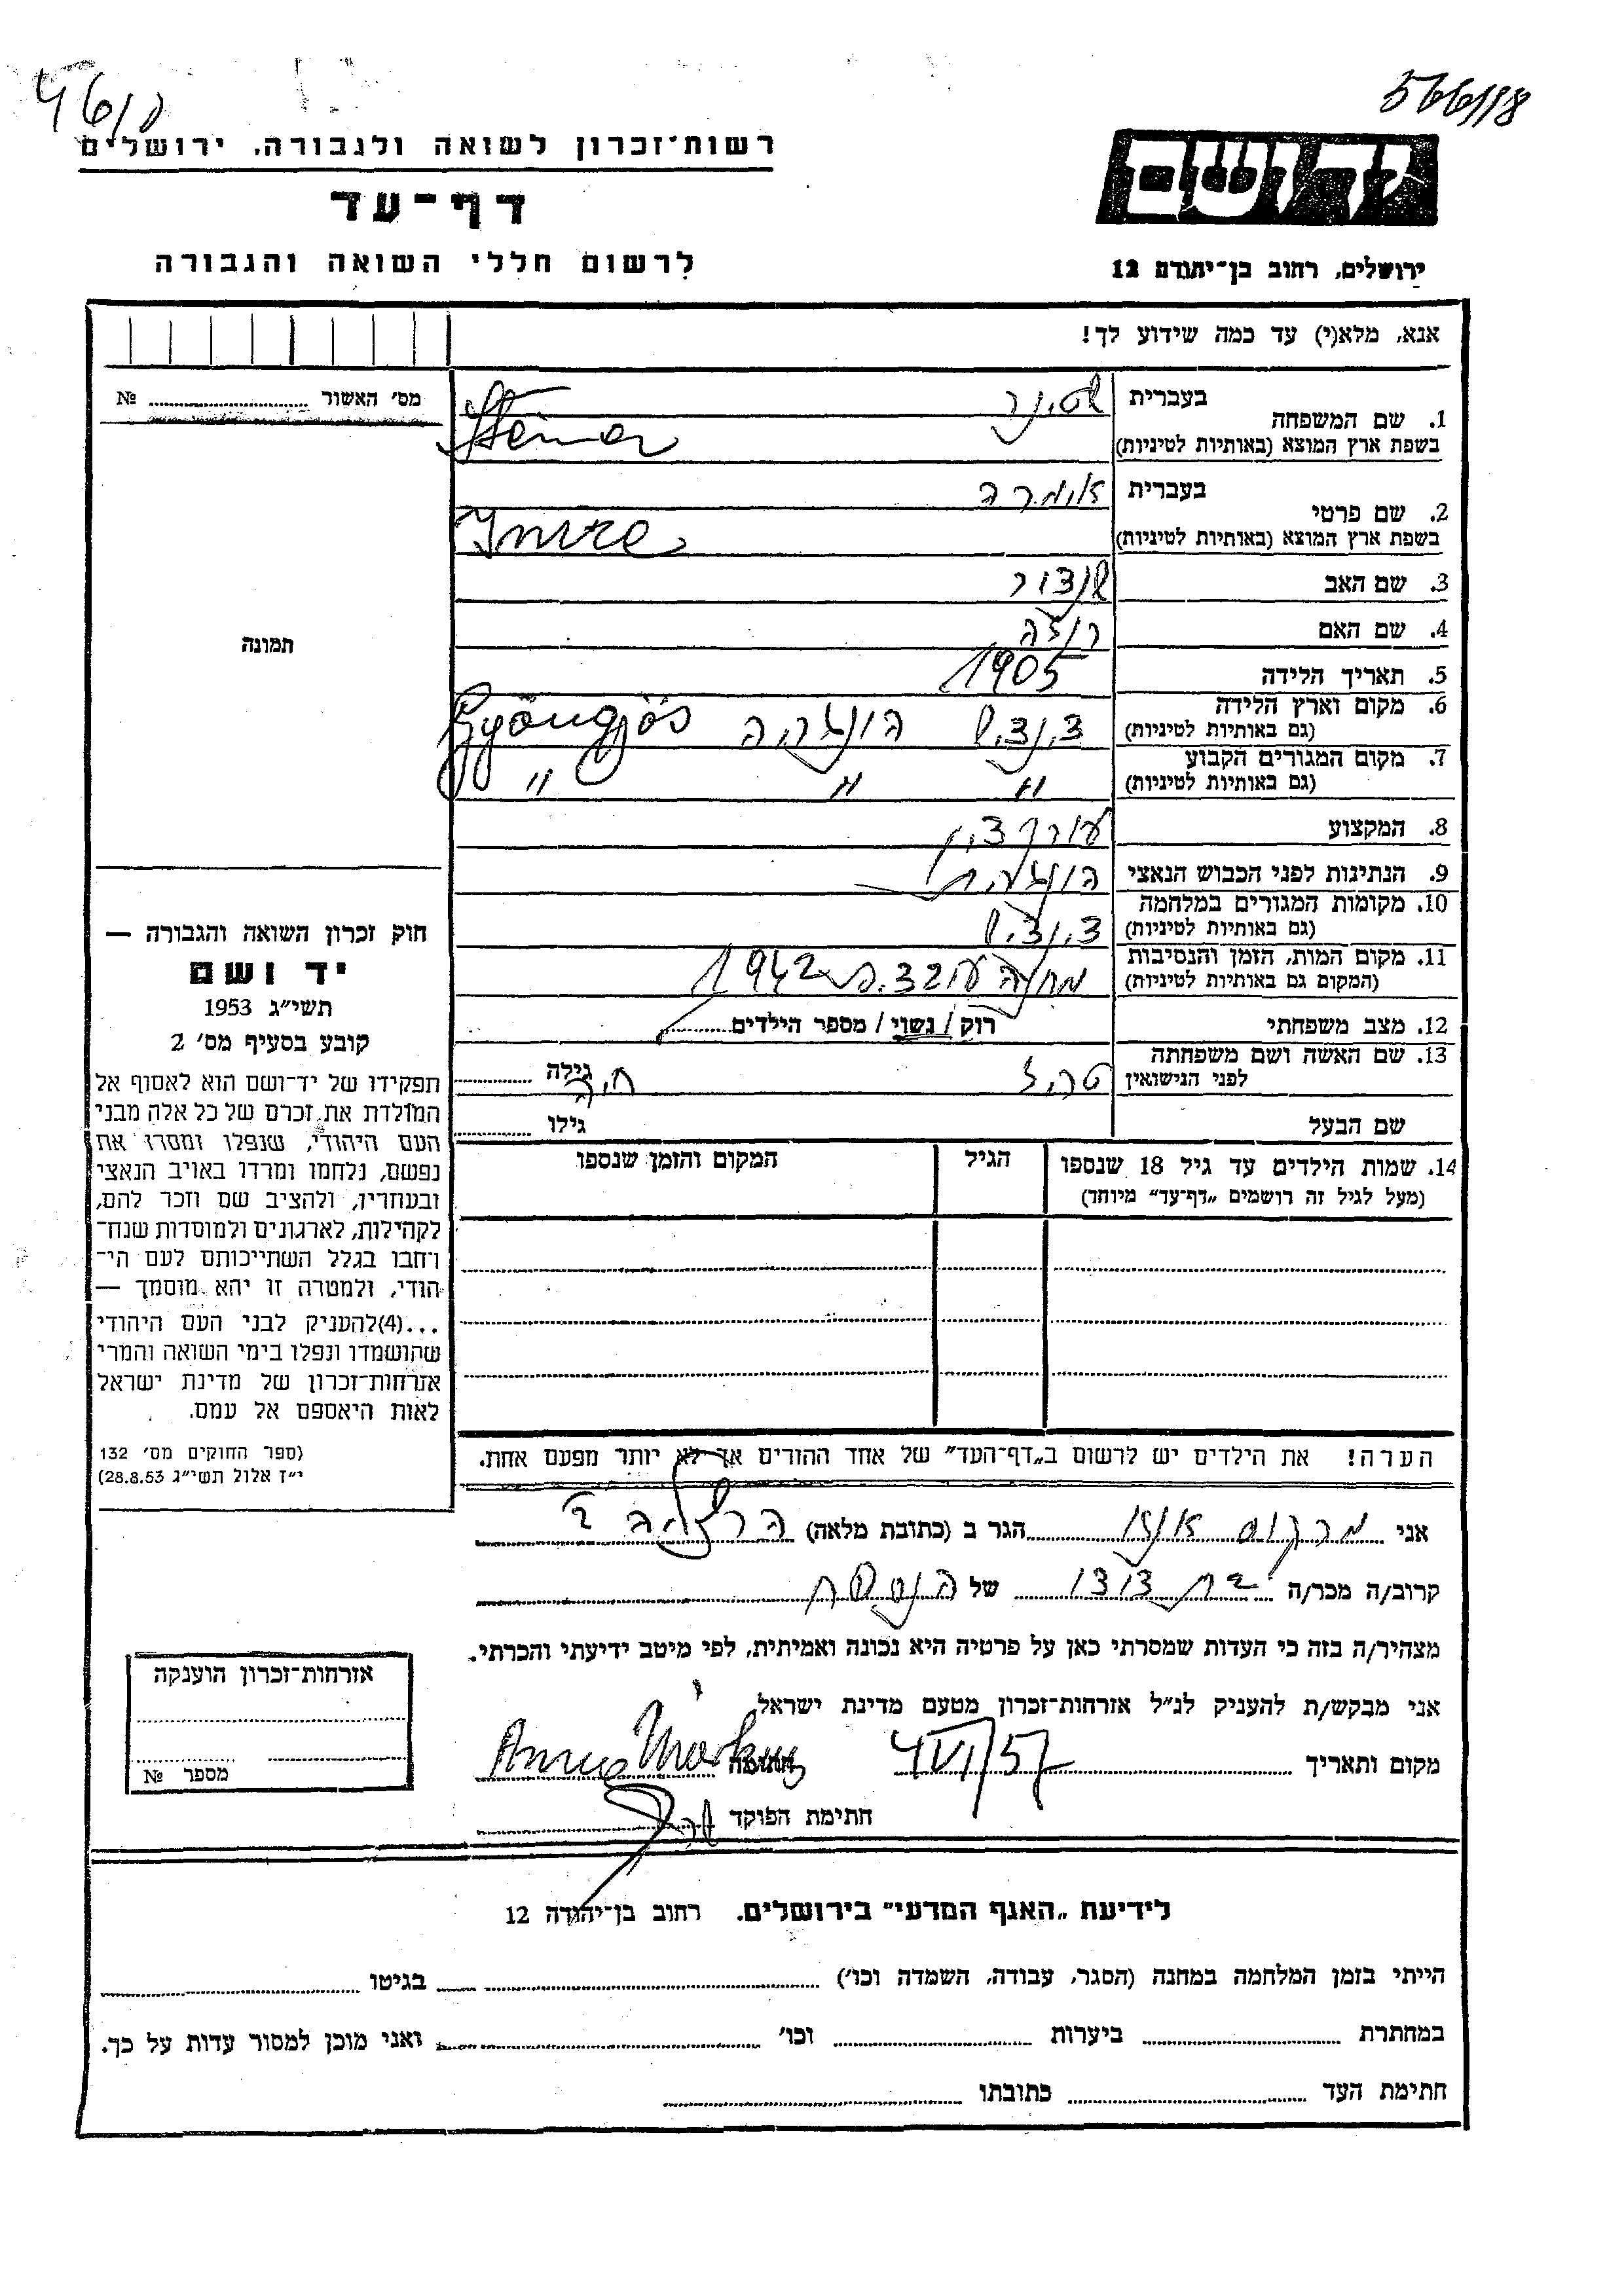 566/18
46/0
רשות־זכרון לשואה ולגבורה, ירושלים
דף־עד
לרשום חללי השואה והגבורה
יד ושם
ירושלים, רחוב בן־יהודה 12
אנא, מלא(י) עד כמה שידוע לך!
מס׳ האשור № 
1. שם המשפחה
בעברית שטינר
בשפת ארץ המוצא (באותיות לטיניות) Steiner
2. שם פרטי
בעברית אימרה
בשפת ארץ המוצא (באותיות לטיניות) Imre
3. שם האב שנדור
4. שם האם רוזה
5. תאריך הלידה 1905
6. מקום וארץ הלידה
(גם באותיות לטיניות) הונגריה Gyöngjös
7. מקום המגורים הקבוע
(גם באותיות לטיניות) " " "
8. המקצוע עורך דין
9. הנתינות לפני הכבוש הנאצי הונגרית
10. מקומות המגורים במלחמה
(גם באותיות לטיניות)
11. מקום המות, הזמן והנסיבות
(המקום גם באותיות לטיניות) מחנה עובדים 1942
12. מצב משפחתי רוק/נשוי/מספר הילדים
13. שם האשה ושם משפחתה
לפני הנישואין גילה
שם הבעל גילו
14. שמות הילדים עד גיל 18 שנספו
(מעל לגיל זה רושמים „דף־עד” מיוחד)
הגיל
המקום והזמן שנספו
הערה! את הילדים יש לרשום ב„דף־העד” של אחד ההורים אך לא יותר מפעם אחת.
תמונה
חוק זכרון השואה והגבורה —
יד ושם
תשי״ג 1953
קובע בסעיף מס׳ 2
תפקידו של יד־ושם הוא לאסוף אל
המולדת את זכרם של כל אלה מבני
העם היהודי, שנפלו ומסרו את
נפשם, נלחמו ומרדו באויב הנאצי
ובעוזריו, ולהציב שם וזכר להם,
לקהילות, לארגונים ולמוסדות שנח־
רחבו בגלל השתייכותם לעם הי־
הודי, ולמטרה זו יהא מוסמך —
...(4)להעניק לבני העם היהודי
שהושמדו ונפלו בימי השואה והמרי
אזרחות־זכרון של מדינת ישראל
לאות היאספם אל עמם.
(ספר החוקים מס׳ 132
י״ז אלול תשי״ג 28.8.53)
אני מרקוס אנה הגר ב (כתובת מלאה) הרצליה ב׳
קרוב/ה מכר/ה בת דודו של הנספה
מצהיר/ה בזה כי העדות שמסרתי כאן על פרטיה היא נכונה ואמיתית, לפי מיטב ידיעתי והכרתי.
אני מבקש/ת להעניק לנ״ל אזרחות־זכרון מטעם מדינת ישראל
מקום ותאריך 4VI/57 חתימה Anna Markus
חתימת הפוקד
אזרחות־זכרון הוענקה
מספר №
לידיעת „האגף המדעי” בירושלים. רחוב בן־יהודה 12
הייתי בזמן המלחמה במחנה (הסגר, עבודה, השמדה וכו׳) בגיטו
במחתרת ביערות וכו׳ ואני מוכן למסור עדות על כך.
חתימת העד כתובתו